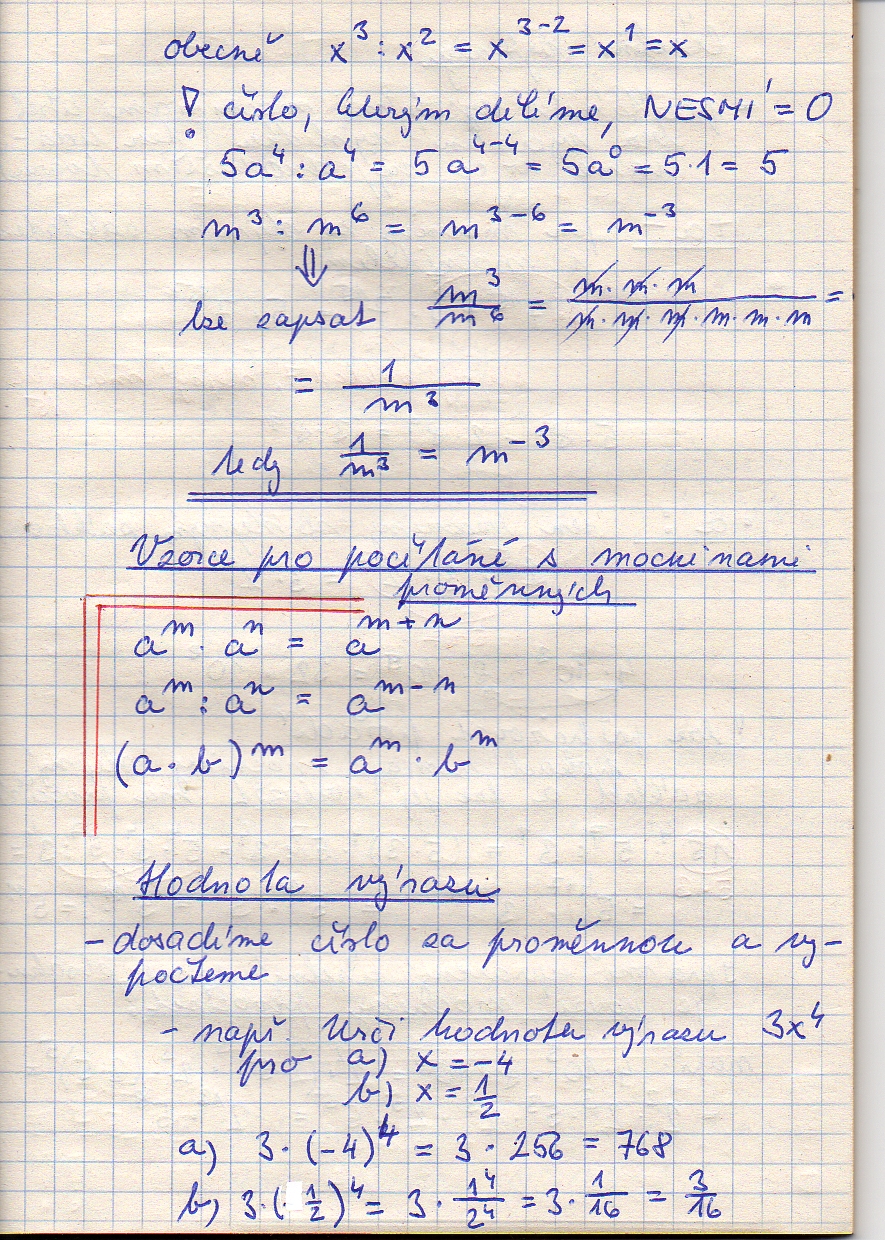 obecně x³ : x² = x³⁻² = x¹ = x
! číslo, kterým dělíme, NESMÍ = 0
5a⁴ : a⁴ = 5a⁴⁻⁴ = 5a⁰ = 5·1 = 5
m³ : m⁶ = m³⁻⁶ = m⁻³
⇓
lze zapsat m³/m⁶ = m·m·m/m·m·m·m·m·m =
= 1/m³
tedy 1/m³ = m⁻³
Vzorce pro počítání s mocninami
proměnných
aᵐ · aⁿ = aᵐ⁺ⁿ
aᵐ : aⁿ = aᵐ⁻ⁿ
(a · b)ᵐ = aᵐ · bᵐ
Hodnota výrazu
- dosadíme číslo za proměnnou a vy-
počteme
- např. Urči hodnotu výrazu 3x⁴
pro a) x = -4
b) x = 1/2
a) 3 · (-4)⁴ = 3 · 256 = 768
b) 3 · (1/2)⁴ = 3 · 1⁴/2⁴ = 3 · 1/16 = 3/16